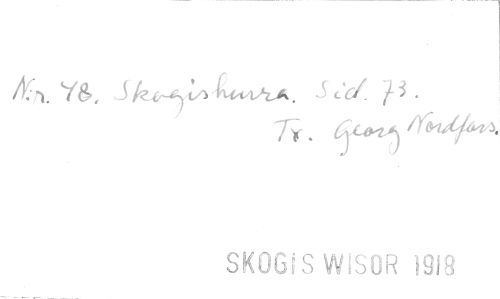 N:r. 48. Skogishurra. Sid. 73.
Tr. Georg Nordfors.
SKOGIS WISOR 1918